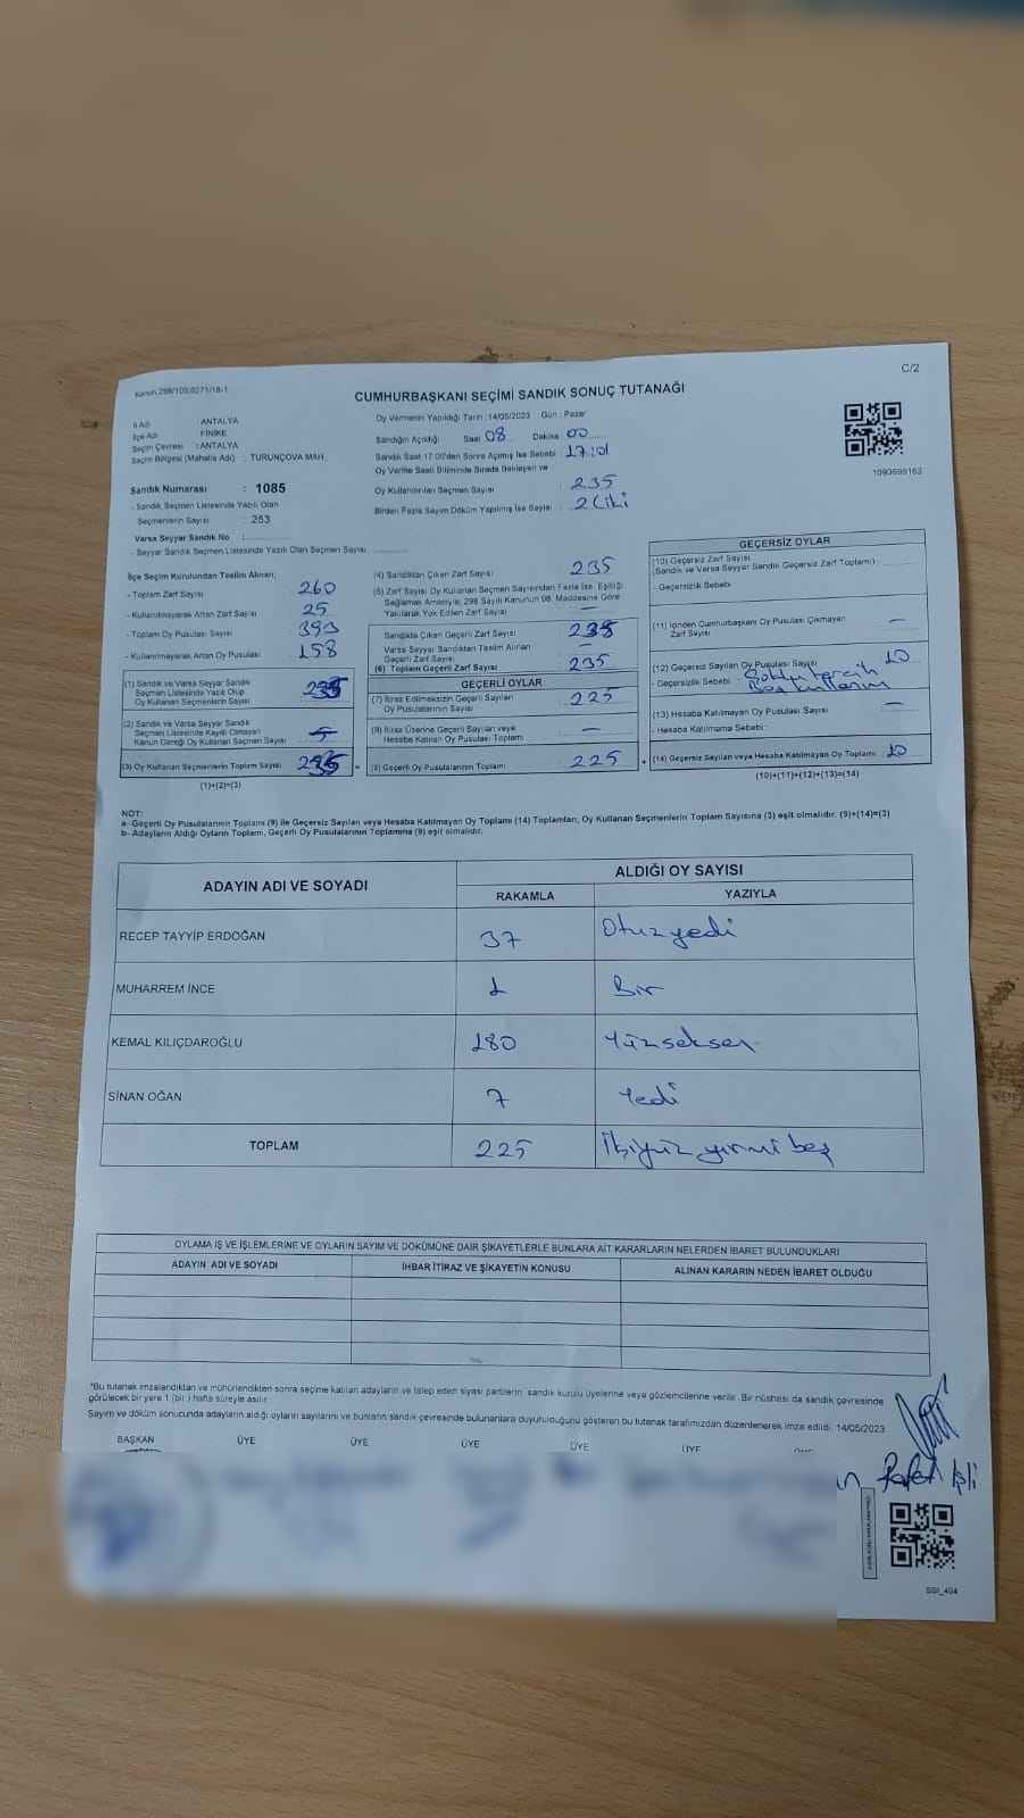 C/2
CUMHURBAŞKANI SEÇİMİ SANDIK SONUÇ TUTANAĞI
İl Adı : ANTALYA
İlçe Adı : FİNİKE
Seçim Çevresi : ANTALYA
Seçim Bölgesi (Mahalle Adı) : TURUNÇOVA MAH.
Sandık Numarası : 1085
- Sandık Seçmen Listesinde Yazılı Olan
Seçmenlerin Sayısı : 253
Varsa Seyyar Sandık No :
- Seyyar Sandık Seçmen Listesinde Yazılı Olan Seçmen Sayısı
Oy Vermenin Yapıldığı Tarih : 14/05/2023 Gün : Pazar
Sandığın Açıldığı Saat 08 Dakika 00
Sandık Saat 17.00'den Sonra Açılmış İse Sebebi 17:01
Oy Verme Saati Bitiminde Sırada Bekleyen ve
Oy Kullandırılan Seçmen Sayısı 235
Birden Fazla Sayım Döküm Yapılmış İse Sayısı : 2 (iki
1090699163
İlçe Seçim Kurulundan Teslim Alınan;
- Toplam Zarf Sayısı 260
- Kullanılmayarak Artan Zarf Sayısı 25
- Toplam Oy Pusulası Sayısı 393
- Kullanılmayarak Artan Oy Pusulası 158
(1) Sandık ve Varsa Seyyar Sandık
Seçmen Listesinde Yazılı Olup
Oy Kullanan Seçmenlerin Sayısı
(2) Sandık ve Varsa Seyyar Sandık
Seçmen Listesinde Kayıtlı Olmayan
Kanun Gereği Oy Kullanan Seçmen Sayısı
(3) Oy Kullanan Seçmenlerin Toplam Sayısı 235
(1)+(2)=(3)
(4) Sandıktan Çıkan Zarf Sayısı 235
(5) Zarf Sayısı Oy Kullanan Seçmen Sayısından Fazla İse, Eşitliği
Sağlamak Amacıyla, 298 Sayılı Kanunun 98. Maddesine Göre
Yakılarak Yok Edilen Zarf Sayısı —
Sandıkta Çıkan Geçerli Zarf Sayısı 235
Varsa Seyyar Sandıktan Teslim Alınan
Geçerli Zarf Sayısı —
(6) Toplam Geçerli Zarf Sayısı 235
GEÇERLİ OYLAR
(7) İtiraz Edilmeksizin Geçerli Sayılan
Oy Pusulalarının Sayısı 225
(8) İtiraz Üzerine Geçerli Sayılan veya
Hesaba Katılan Oy Pusulası Toplamı —
(9) Geçerli Oy Pusulalarının Toplamı 225
GEÇERSİZ OYLAR
(10) Geçersiz Zarf Sayısı
(Sandık ve Varsa Seyyar Sandık Geçersiz Zarf Toplamı)
- Geçersizlik Sebebi
(11) İçinden Cumhurbaşkanı Oy Pusulası Çıkmayan
Zarf Sayısı —
(12) Geçersiz Sayılan Oy Pusulası Sayısı 10
- Geçersizlik Sebebi : Çoklu tercih
Boş kullanım
(13) Hesaba Katılmayan Oy Pusulası Sayısı —
- Hesaba Katılmama Sebebi :
(14) Geçersiz Sayılan veya Hesaba Katılmayan Oy Toplamı 10
(10)+(11)+(12)+(13)=(14)
NOT:
a- Geçerli Oy Pusulalarının Toplamı (9) ile Geçersiz Sayılan veya Hesaba Katılmayan Oy Toplamı (14) Toplamları, Oy Kullanan Seçmenlerin Toplam Sayısına (3) eşit olmalıdır. (9)+(14)=(3)
b- Adayların Aldığı Oyların Toplamı, Geçerli Oy Pusulalarının Toplamına (9) eşit olmalıdır.
ADAYIN ADI VE SOYADI ALDIĞI OY SAYISI
RAKAMLA YAZIYLA
RECEP TAYYİP ERDOĞAN 37 Otuzyedi
MUHARREM İNCE 1 Bir
KEMAL KILIÇDAROĞLU 180 Yüzseksen
SİNAN OĞAN 7 Yedi
TOPLAM 225 İkiyüz yirmi beş
OYLAMA İŞ VE İŞLEMLERİNE VE OYLARIN SAYIM VE DÖKÜMÜNE DAİR ŞİKAYETLERLE BUNLARA AİT KARARLARIN NELERDEN İBARET BULUNDUKLARI
ADAYIN ADI VE SOYADI İHBAR İTİRAZ VE ŞİKAYETİN KONUSU ALINAN KARARIN NEDEN İBARET OLDUĞU
*Bu tutanak imzalandıktan ve mühürlendikten sonra seçime katılan adayların ve talep eden siyasi partilerin, sandık kurulu üyelerine veya gözlemcilerine verilir. Bir nüshası da sandık çevresinde
görülecek bir yere 1 (bir ) hafta süreyle asılır.
Sayım ve döküm sonucunda adayların aldığı oyların sayılarını ve bunların sandık çevresinde bulunanlara duyurulduğunu gösteren bu tutanak tarafımızdan düzenlenerek imza edildi. 14/05/2023
BAŞKAN ÜYE ÜYE ÜYE ÜYE ÜYE